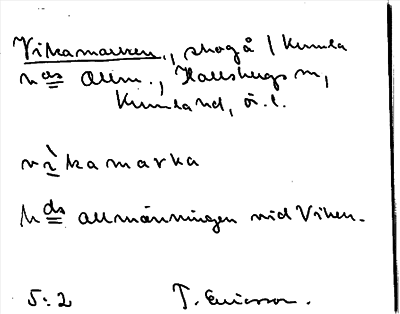 Vikamarken., skogå / Kumla
hds Allm., Hallsbergs sn,
Kumland, ö.l.
vìkamarka
hds allmänningen vid Viken.
5:2 T. Ericsson.